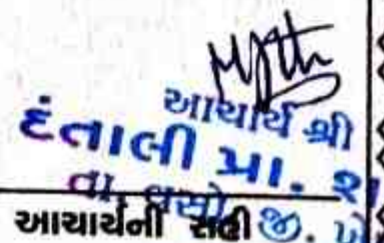 આચાર્ય શ્રી
દંતાલી પ્રા. શા
તા. વસો, જી. ખે
આચાર્યની સહી